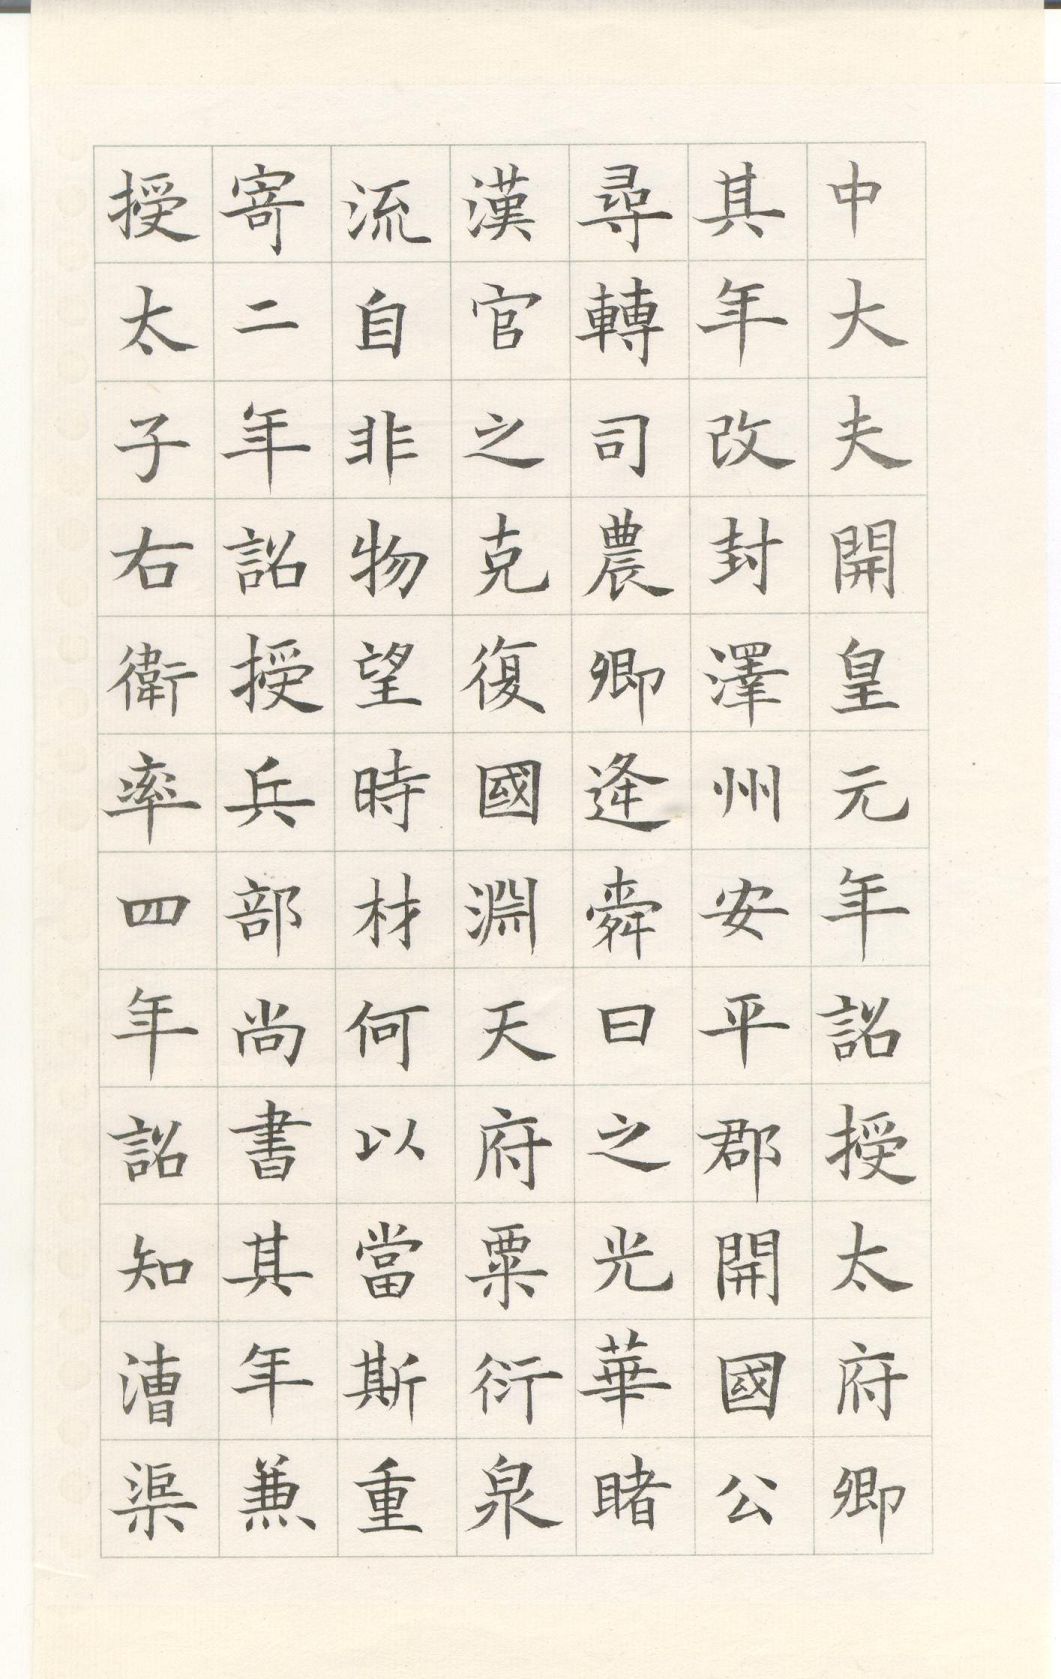 中大夫開皇元年詔授太府卿
其年改封澤州安平郡開國公
尋轉司農卿逄舜日之光華睹
漢官之克復國淵天府粟衍泉
流自非物望時材何以當斯重
寄二年詔授兵部尚書其年兼
授太子右衛率四年詔知漕渠